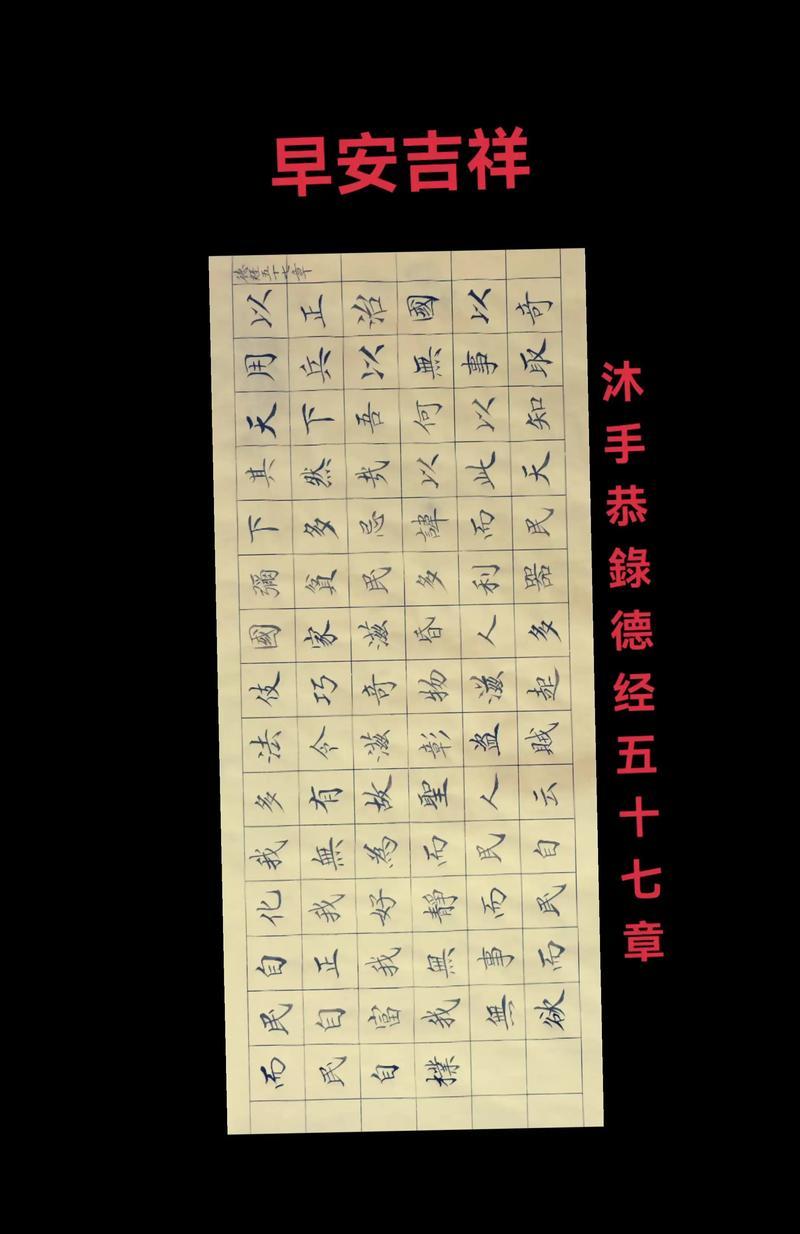 早安吉祥
德經五十七章
以正治國以奇
用兵以無事取
天下吾何以知
其然哉以此天
下多忌諱而民
彌貧民多利器
國家滋昏人多
伎巧奇物滋起
法令滋彰盜賊
多有故聖人云
我無為而民自
化我好靜而民
自正我無事而
民自富我無欲
而民自樸
沐手恭錄德经五十七章